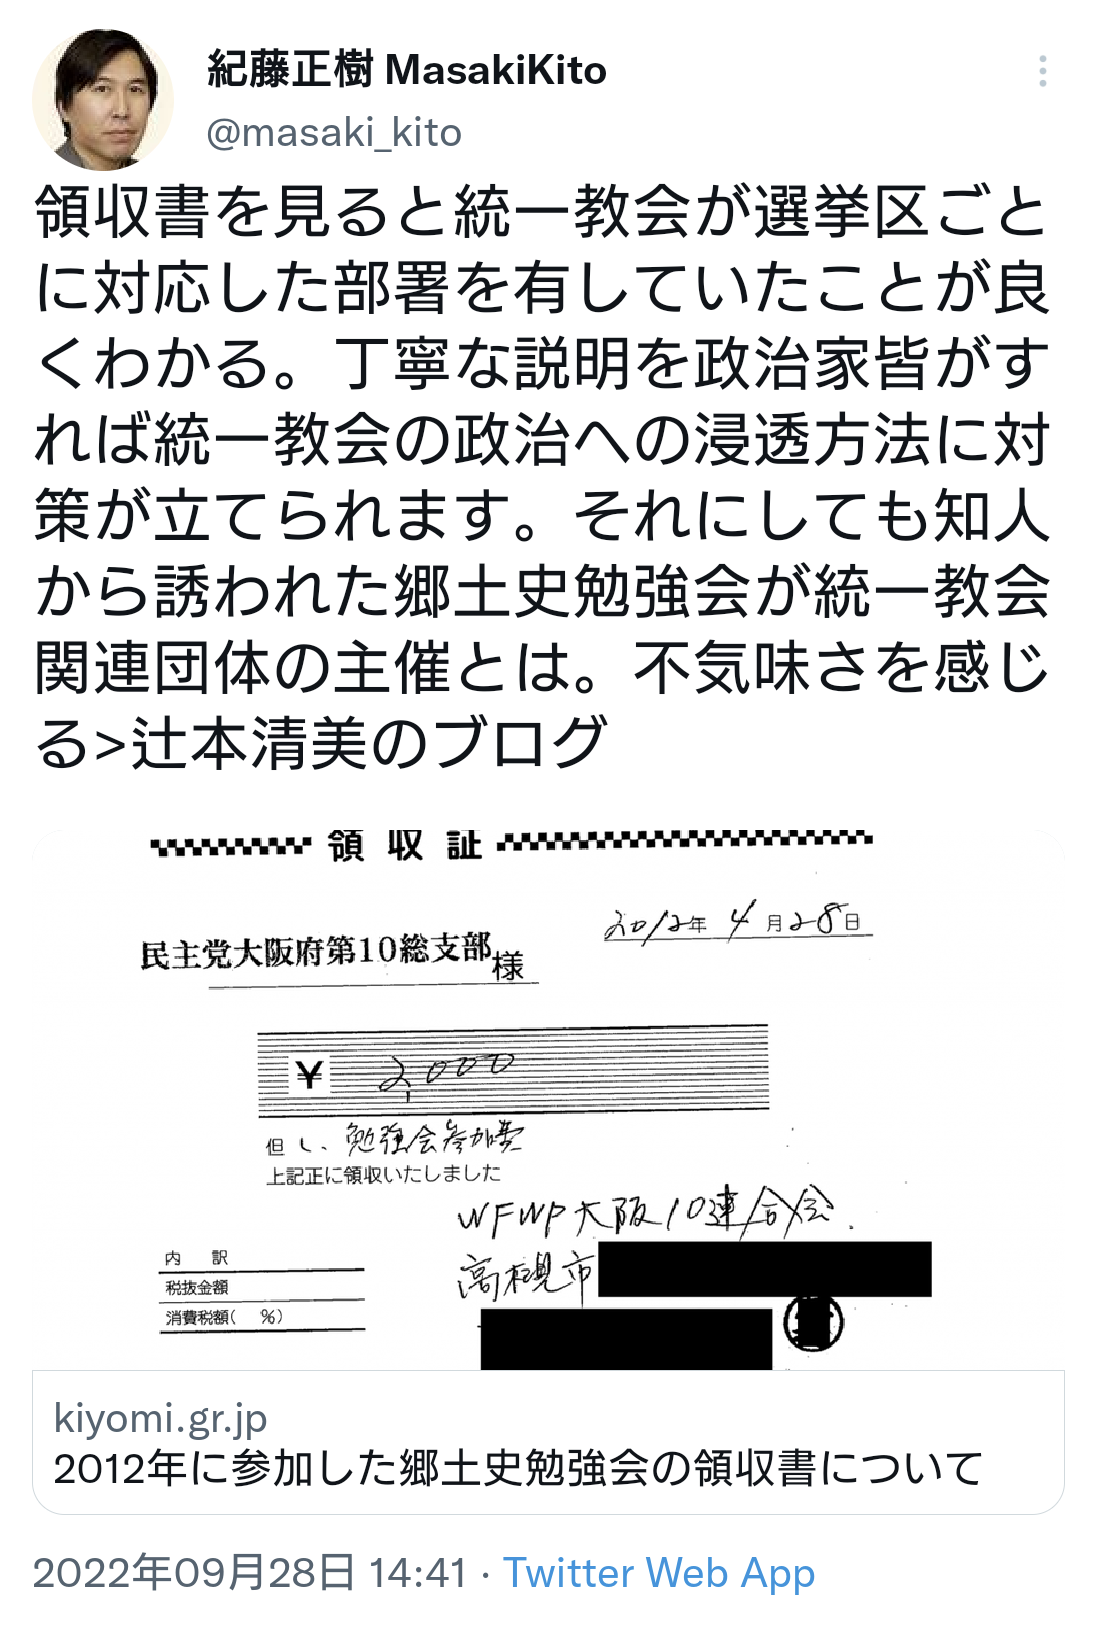 紀藤正樹 MasakiKito
@masaki_kito
領収書を見ると統一教会が選挙区ごと
に対応した部署を有していたことが良
くわかる。丁寧な説明を政治家皆がす
れば統一教会の政治への浸透方法に対
策が立てられます。それにしても知人
から誘われた郷土史勉強会が統一教会
関連団体の主催とは。不気味さを感じ
る>辻本清美のブログ
領収証
2012年4月28日
民主党大阪府第10総支部様
¥ 2,000
但し、勉強会参加費
上記正に領収いたしました
WFWP大阪10連合会.
高槻市
内 訳
税抜金額
消費税額( %)
kiyomi.gr.jp
2012年に参加した郷土史勉強会の領収書について
2022年09月28日 14:41 · Twitter Web App